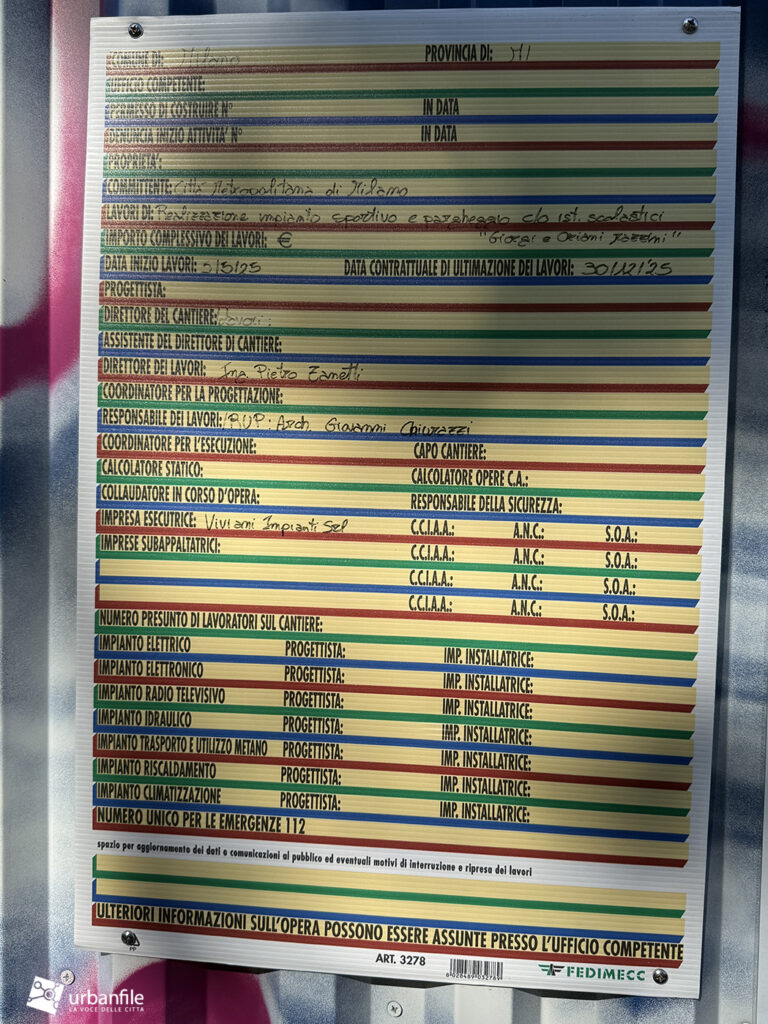 COMUNE DI: Milano PROVINCIA DI: MI
UFFICIO COMPETENTE:
PERMESSO DI COSTRUIRE N° IN DATA
DENUNCIA INIZIO ATTIVITA' N° IN DATA
PROPRIETA':
COMMITTENTE: Città Metropolitana di Milano
LAVORI DI: Realizzazione impianto sportivo e parcheggio c/o ist. scolastici
IMPORTO COMPLESSIVO DEI LAVORI: € "Giorgi e
DATA INIZIO LAVORI: 5/5/25 DATA CONTRATTUALE DI ULTIMAZIONE DEI LAVORI: 30/12/25
PROGETTISTA:
DIRETTORE DEL CANTIERE:
ASSISTENTE DEL DIRETTORE DI CANTIERE:
DIRETTORE DEI LAVORI: Ing. Pietro Zanetti
COORDINATORE PER LA PROGETTAZIONE:
RESPONSABILE DEI LAVORI:/RUP: Arch. Giovanni Chiurazzi
COORDINATORE PER L'ESECUZIONE: CAPO CANTIERE:
CALCOLATORE STATICO: CALCOLATORE OPERE C.A.:
COLLAUDATORE IN CORSO D'OPERA: RESPONSABILE DELLA SICUREZZA:
IMPRESA ESECUTRICE: Viviani Impianti Srl C.C.I.A.A.: A.N.C.: S.O.A.:
IMPRESE SUBAPPALTATRICI: C.C.I.A.A.: A.N.C.: S.O.A.:
C.C.I.A.A.: A.N.C.: S.O.A.:
C.C.I.A.A.: A.N.C.: S.O.A.:
NUMERO PRESUNTO DI LAVORATORI SUL CANTIERE:
IMPIANTO ELETTRICO PROGETTISTA: IMP. INSTALLATRICE:
IMPIANTO ELETTRONICO PROGETTISTA: IMP. INSTALLATRICE:
IMPIANTO RADIO TELEVISIVO PROGETTISTA: IMP. INSTALLATRICE:
IMPIANTO IDRAULICO PROGETTISTA: IMP. INSTALLATRICE:
IMPIANTO TRASPORTO E UTILIZZO METANO PROGETTISTA: IMP. INSTALLATRICE:
IMPIANTO RISCALDAMENTO PROGETTISTA: IMP. INSTALLATRICE:
IMPIANTO CLIMATIZZAZIONE PROGETTISTA: IMP. INSTALLATRICE:
NUMERO UNICO PER LE EMERGENZE 112
spazio per aggiornamento dei dati o comunicazioni al pubblico ed eventuali motivi di interruzione e ripresa dei lavori
ULTERIORI INFORMAZIONI SULL'OPERA POSSONO ESSERE ASSUNTE PRESSO L'UFFICIO COMPETENTE
PP
ART. 3278
FEDIMECC
urbanfile
LA VOCE DELLE CITTÀ